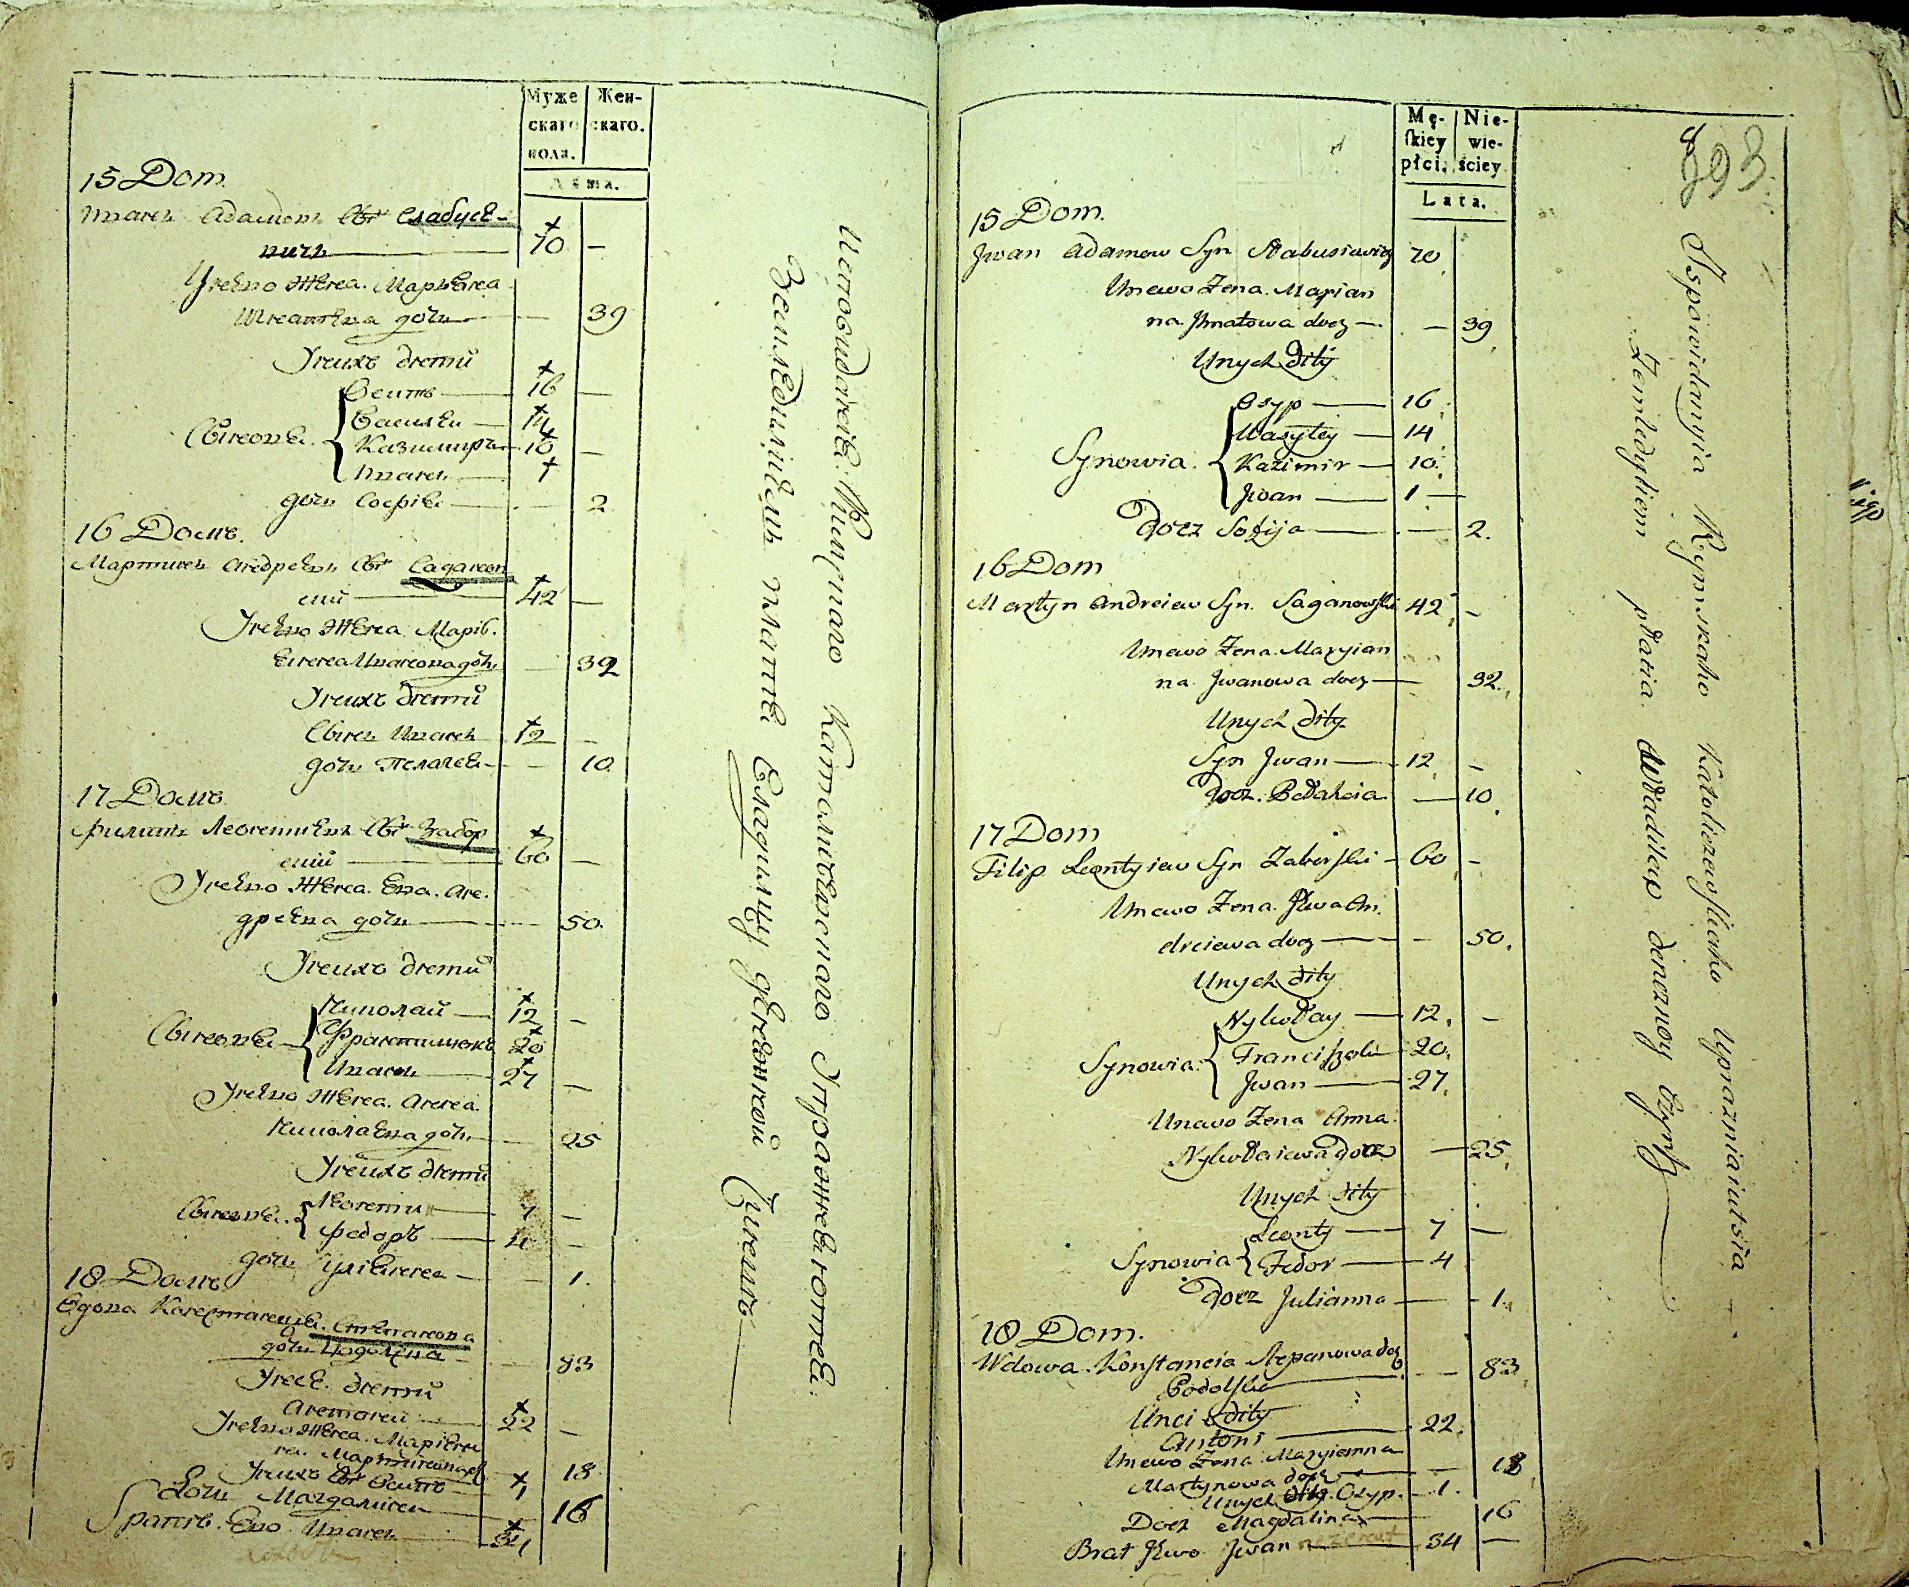 Муже
скаго
пола.
Жен-
скаго.
Лѣта.
15 Dom.
Иванъ Адамовъ Сынъ Слабусе-
вичь 70 —
Унево Жена. Марьяна
Игнатьева дочь — 39
Унихъ дѣти
Сынова
Осипъ 16 —
Василь 14
Казимиръ 10 —
Иванъ 1
дочь Софія — 2
16 Домъ.
Мартинъ Андреевъ Сынъ Саганов
скій 42 —
Унево Жена. Марія.
на Иванова дочь — 32
Унихъ дѣти
Сынъ Иванъ 12 —
дочь Пелагея — 10
17 Домъ.
Филипъ Леонтіевъ Сынъ Забор
скій 60 —
Унево Жена. Ева. Ан.
дреева дочь — 50.
Унихъ дѣти
Сынова
Николай 12 —
Францишекъ 20
Иванъ 27 —
Унево Жена. Анна.
Николаева дочь — 25
Унихъ дѣти
Сынова.
Леонти 7 —
Федоръ 4 —
дочь Уліянна — 1.
18 Домъ
Вдова Констанція. Степанова
дочь Подолска — 83
Унее. дѣти
Антони 22 —
Унево Жена. Маріянна
Мартинова 18
Унихъ Осипъ 1
Дочь Магдалина 16
Братъ. Ево. Иванъ 34
Исповиданія Римскаго Католическаго Упражняются.
Земледилиемъ платя Владилцу денежной Чиншъ
Mę-
skiey
płci.
Nie-
wie-
ściey
Lata.
893.
15 Dom.
Jwan Adamow Syn Słabusiewicz 70
Unewo Żena. Marjan
na Jhnatowa docz — — 39
Unych dity
Synowia.
Osyp 16
Wasyley 14
Kazimir 10.
Jwan 1 —
Docz Sofija — 2.
16 Dom
Martyn Andreiew Syn. Saganowski 42 —
Unewo Żena. Maryian
na Jwanowa docz — 32.
Unych dity
Syn Jwan 12 —
Docz. Pełaheia — 10
17 Dom
Filip Leontyiew Syn Zaborski 60 —
Unewo Żena. Jewa An.
dreiewa docz — 50.
Unych dity
Synowia.
Nykołay 12. —
Franciszek 20.
Jwan 27.
Unewo Żena Anna.
Nykołaiewa docz — 25.
Unych dity
Synowia
Leonty 7 —
Fedor 4
Docz Julianna — 1.
18 Dom.
Wdowa. Konstancia Stepanowa docz
Podolska — 83
Unei dity
Antoni 22.
Unewo Żena. Maryianna
Martynowa docz — 18
Unych dity. Osyp. 1.
Docz Magdalina 16
Brat Jewo Jwan 34 —
Ispowidanyia Rymskaho Katoliczeskaho Upraznaiutsia
Zemledyliem płatia Władilcu deneznoy Czynsz